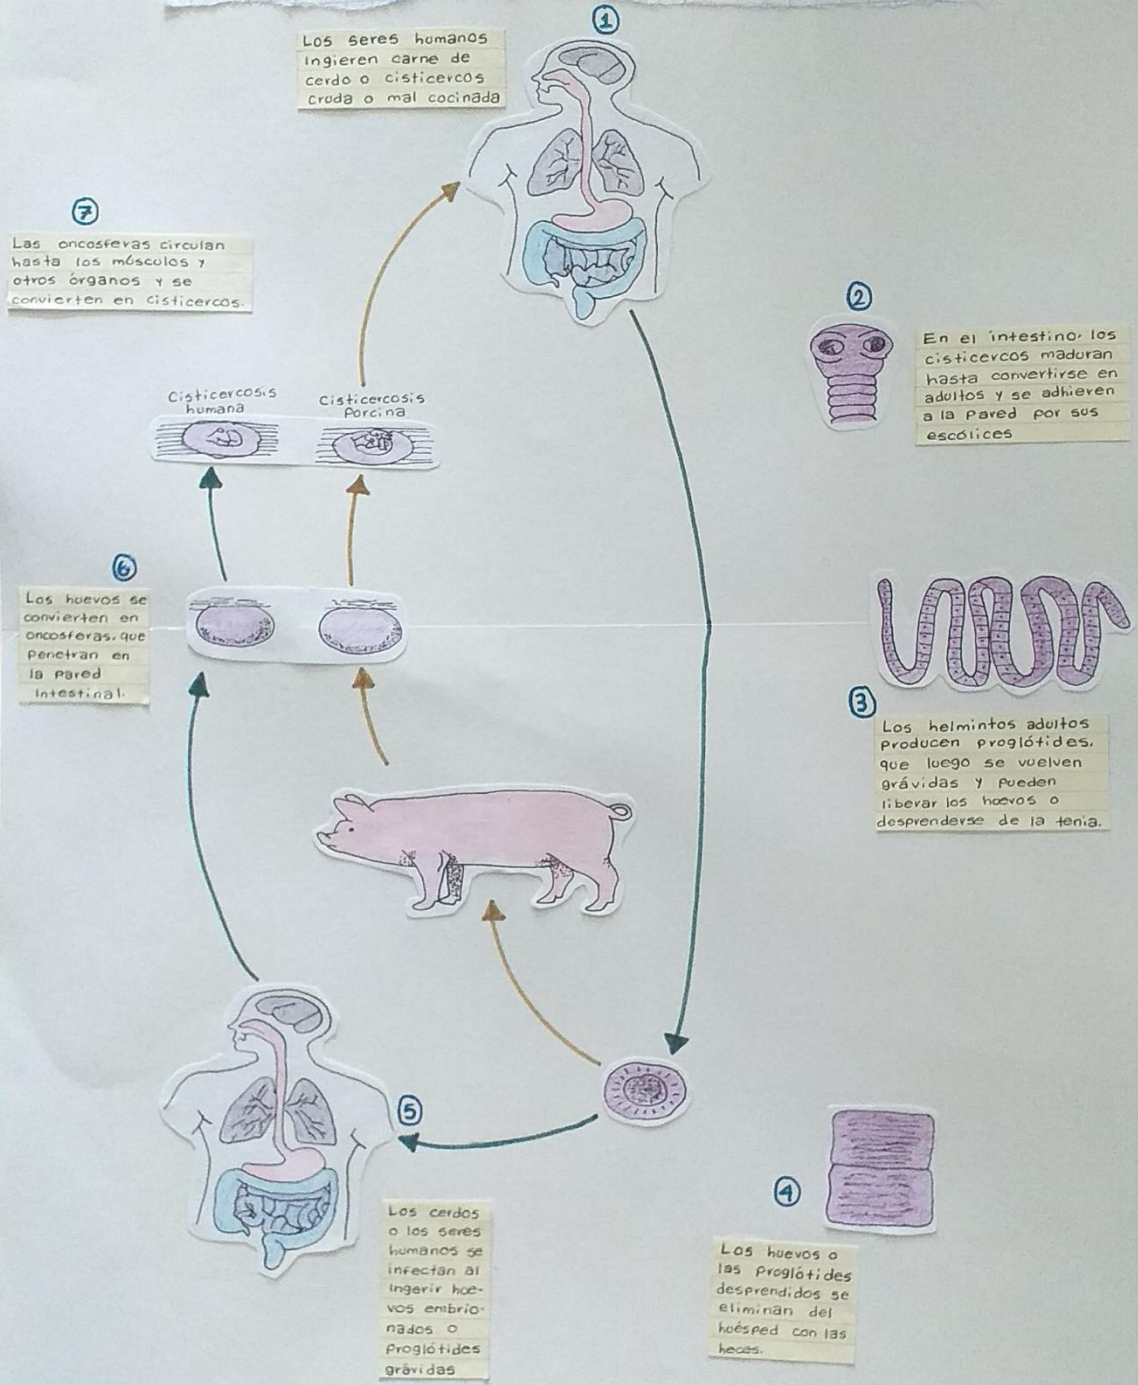 1
Los seres humanos
ingieren carne de
cerdo o cisticercos
cruda o mal cocinada
7
Las oncosferas circulan
hasta los músculos y
otros órganos y se
convierten en cisticercos.
2
En el intestino, los
cisticercos maduran
hasta convertirse en
adultos y se adhieren
a la pared por sus
escólices
Cisticercosis
humana
Cisticercosis
Porcina
6
Los huevos se
convierten en
oncosferas, que
penetran en
la pared
intestinal.
3
Los helmintos adultos
producen proglótides,
que luego se vuelven
grávidas y pueden
liberar los huevos o
desprenderse de la tenia.
5
Los cerdos
o los seres
humanos se
infectan al
ingerir hue-
vos embrio-
nados o
proglótides
grávidas
4
Los huevos o
las proglótides
desprendidos se
eliminan del
huésped con las
heces.